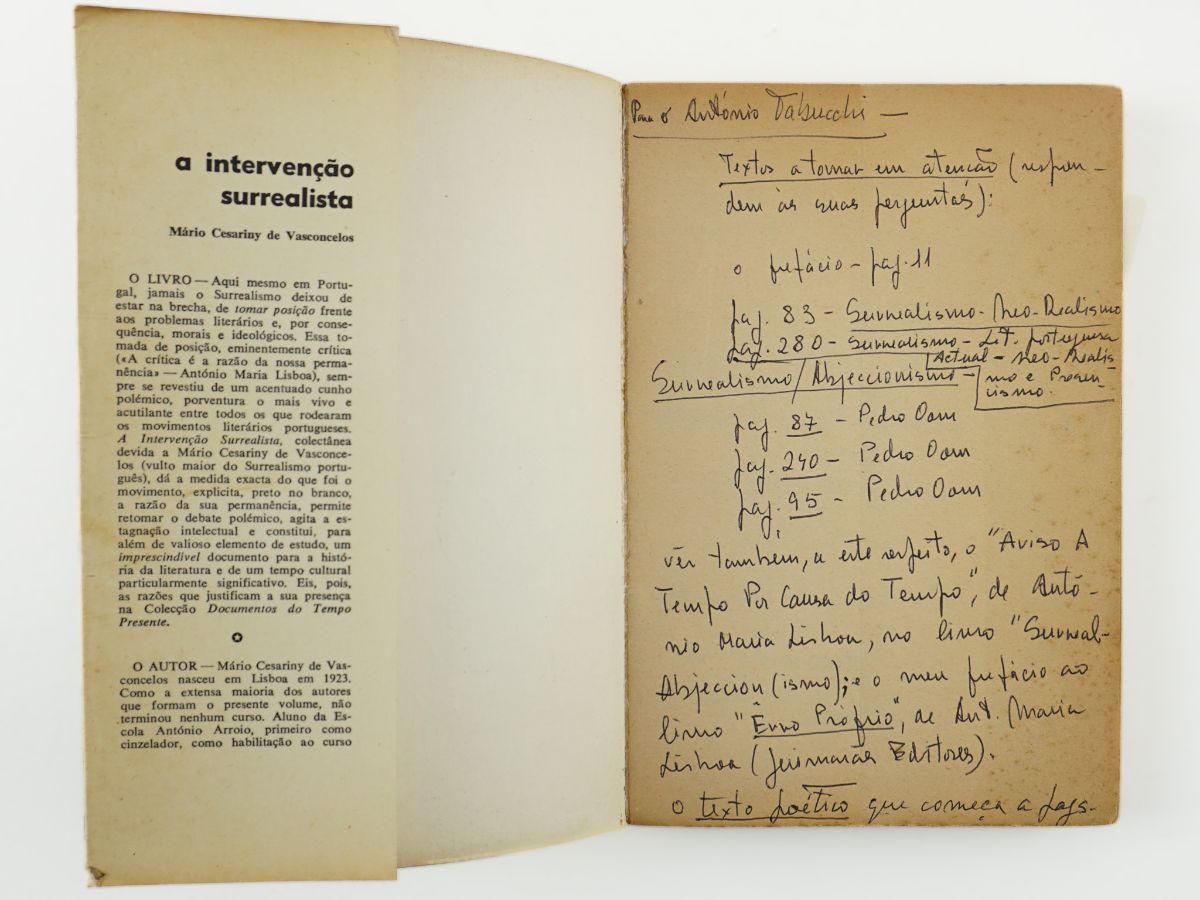 a intervenção
surrealista
Mário Cesariny de Vasconcelos
O LIVRO — Aqui mesmo em Portu-
gal, jamais o Surrealismo deixou de
estar na brecha, de tomar posição frente
aos problemas literários e, por conse-
quência, morais e ideológicos. Essa to-
mada de posição, eminentemente crítica
(«A crítica é a razão da nossa perma-
nência» — António Maria Lisboa), sem-
pre se revestiu de um acentuado cunho
polémico, porventura o mais vivo e
acutilante entre todos os que rodearam
os movimentos literários portugueses.
A Intervenção Surrealista, colectânea
devida a Mário Cesariny de Vasconce-
los (vulto maior do Surrealismo portu-
guês), dá a medida exacta do que foi o
movimento, explicita, preto no branco,
a razão da sua permanência, permite
retomar o debate polémico, agita a es-
tagnação intelectual e constitui, para
além de valioso elemento de estudo, um
imprescindível documento para a histó-
ria da literatura e de um tempo cultural
particularmente significativo. Eis, pois,
as razões que justificam a sua presença
na Colecção Documentos do Tempo
Presente.
O AUTOR — Mário Cesariny de Vas-
concelos nasceu em Lisboa em 1923.
Como a extensa maioria dos autores
que formam o presente volume, não
terminou nenhum curso. Aluno da Es-
cola António Arroio, primeiro como
cinzelador, como habilitação ao curso
Para o António Tabucchi —
Textos a tomar em atenção (respon-
dem às suas perguntas):
o prefácio — pag. 11
pag. 83 — Surrealismo - Neo-Realismo
pag. 280 — Surrealismo - Lit. portuguesa
Actual — Neo-Realis
mo e Presen-
cismo.
Surrealismo/Abjeccionismo —
pag. 87 — Pedro Oom
pag. 240 — Pedro Oom
pag. 95 — Pedro Oom
vêr tambem, a este respeito, o "Aviso A
Tempo Por Causa do Tempo", de Antó-
nio Maria Lisboa, no livro "Surreal-
Abjeccion(ismo); e o meu prefácio ao
livro "Erro Próprio", de Ant. Maria
Lisboa (Guimarães Editores).
O texto poético que começa a pags.